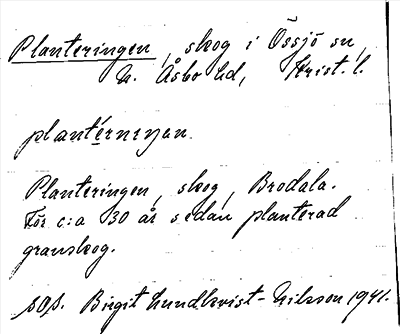 Planteringen, skog i Össjö sn,
N. Åsbo hd, Krist. l.
plantérningen.
Planteringen, skog, Brodala.
För c:a 30 år sedan planterad
granskog.
sos. Birgit Lundkvist-Nilsson 1941.